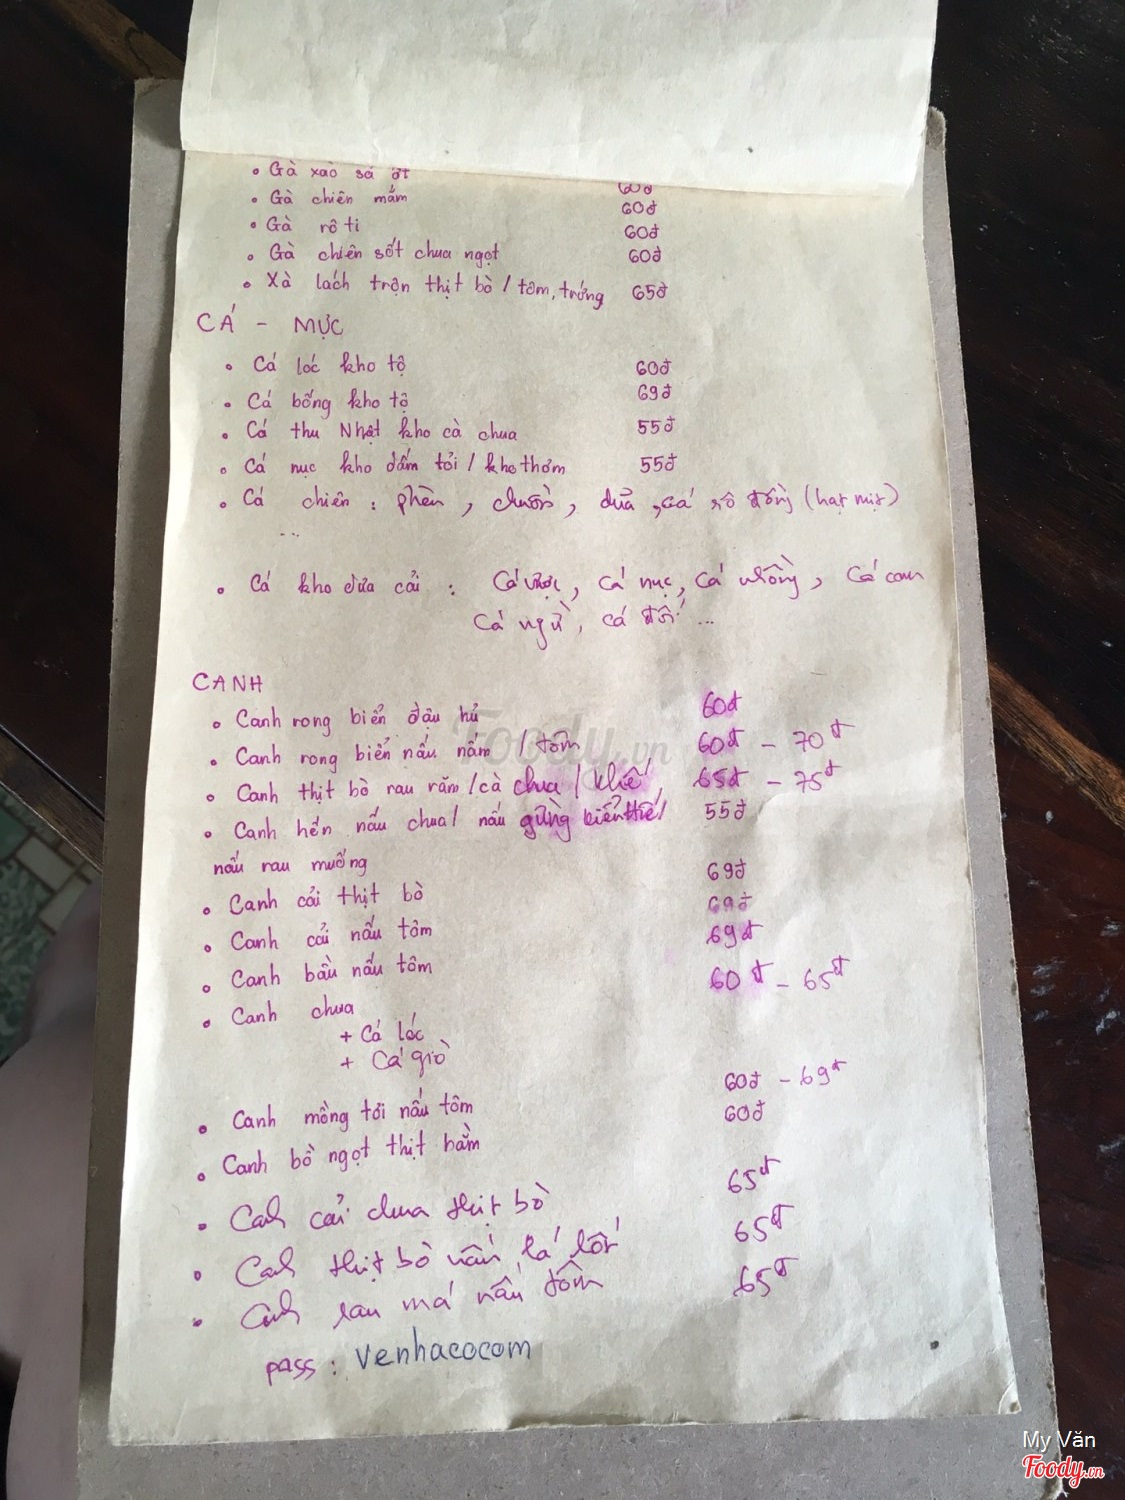 • Gà xào sả ớt 60đ
• Gà chiên mắm 60đ
• Gà rô ti 60đ
• Gà chiên sốt chua ngọt 60đ
• Xà lách trộn thịt bò / tôm, trứng 65đ
CÁ - MỰC
• Cá lóc kho tộ 60đ
• Cá bống kho tộ 69đ
• Cá thu Nhật kho cà chua 55đ
• Cá nục kho dấm tỏi / kho thơm 55đ
• Cá chiên : phèn, chuồn, đuả, cá rô đồng (hạt mịt)
...
• Cá kho dưa cải : Cá nục, Cá cam
Cá ngừ, cá đối ...
CANH
• Canh rong biển đậu hủ 60đ
• Canh rong biển nấu nấm / tôm 60đ - 70đ
• Canh thịt bò rau răm / cà chua / khế 65đ - 75đ
• Canh hến nấu chua / nấu gừng 55đ
nấu rau muống
• Canh cải thịt bò 69đ
• Canh cải nấu tôm 69đ
• Canh bầu nấu tôm 69đ
• Canh chua 60đ - 65đ
+ Cá lóc
+ Cá giò
• Canh mồng tơi nấu tôm 60đ - 69đ
• Canh bồ ngọt thịt bằm 60đ
• Canh cải chua thịt bò 65đ
• Canh thịt bò nấu lá lốt 65đ
• Canh rau má nấu tôm 65đ
pass : venhacocom
Foody.vn
My Văn
Foody.vn